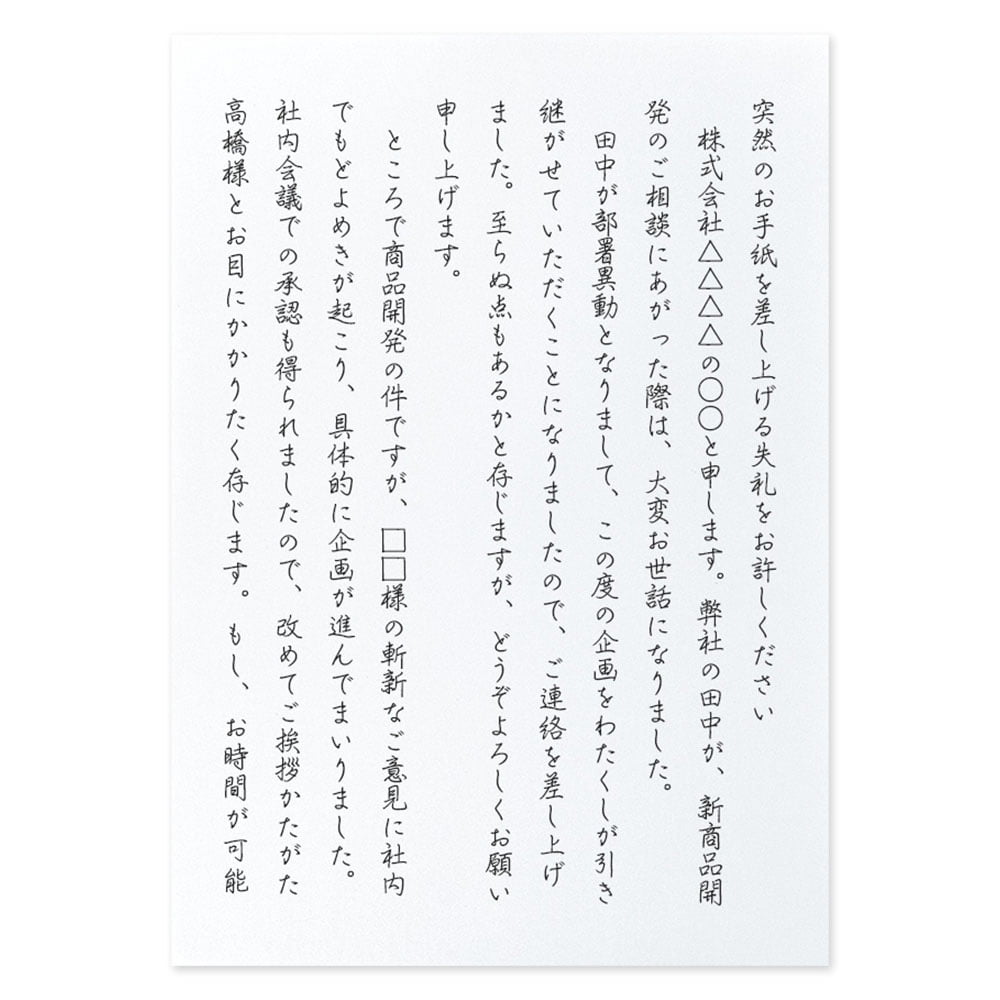 突然のお手紙を差し上げる失礼をお許しください
株式会社△△△△の〇〇と申します。弊社の田中が、新商品開
発のご相談にあがった際は、大変お世話になりました。
田中が部署異動となりまして、この度の企画をわたくしが引き
継がせていただくことになりましたので、ご連絡を差し上げ
ました。至らぬ点もあるかと存じますが、どうぞよろしくお願い
申し上げます。
ところで商品開発の件ですが、□□様の斬新なご意見に社内
でもどよめきが起こり、具体的に企画が進んでまいりました。
社内会議での承認も得られましたので、改めてご挨拶かたがた
高橋様とお目にかかりたく存じます。もし、お時間が可能